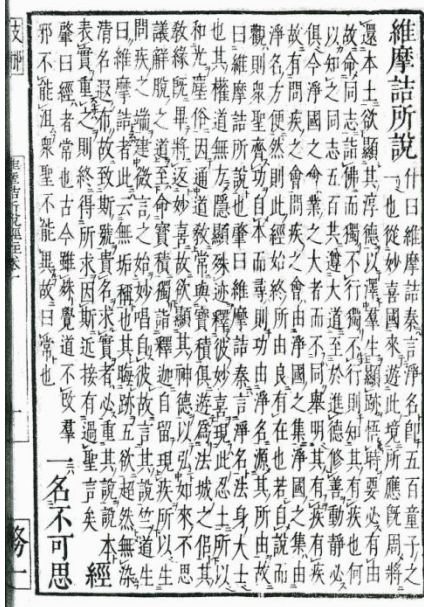 維摩詰所說
什曰維摩詰秦言淨名即五百童子之
一也從妙喜國來遊此境所應既周將
還本土欲顯其淳德以澤羣生顯跡悟時要必有由
故命同志詣佛而獨不行獨不行則知其有疾也何
以知之同志五百共遵大道至於進德修善動靜必
俱今淨國之會業之大者而不同舉明其有疾有疾
故有問疾之會問疾之會由淨國之集淨國之集由
淨名方便然則此經始終所由良有在也若自說而
觀則衆聖齊功自本而尋則功由淨名源其所由故
曰維摩詰所說也肇曰維摩詰秦言淨名法身大士
也其權道無方隱顯殊迹釋彼妙喜現此忍土所以
和光塵俗因通道教常與寶積俱遊爲法城之侶其
教緣既畢將返妙喜故欲顯其神德以弘如來不思
議解脫之道至命寶積獨詣釋迦自留現疾所以生
問疾之端建微言之始妙唱自彼故言其說竺道生
曰維摩詰者此云無垢稱也其晦跡五欲超然無染
清名遐布故致斯號貴名求實者必重其說說本
表實重之則終得所求因斯近接有過聖言矣
經
肇曰經者常也古今雖殊覺道不改羣
邪不能沮衆聖不能異故曰常也
一名不可思
維摩詰所說經註卷一
一
務一